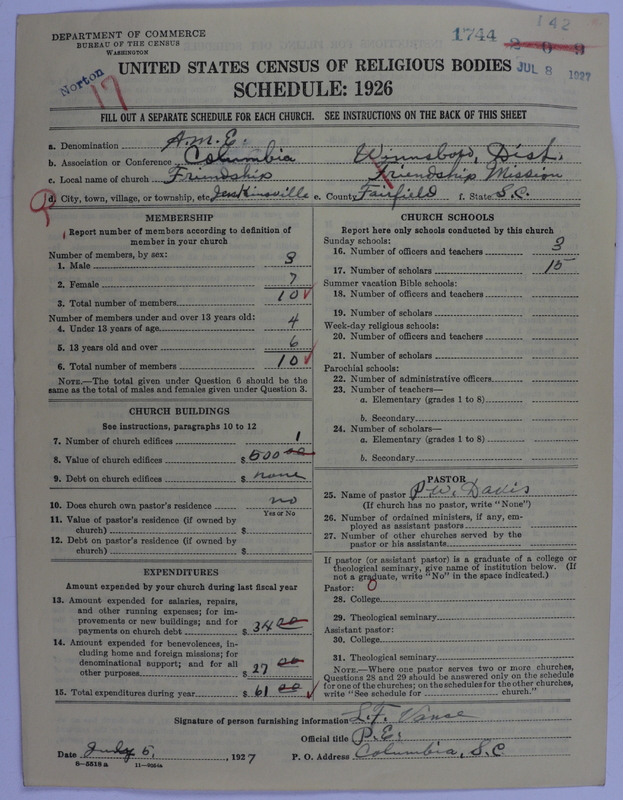 142
DEPARTMENT OF COMMERCE
BUREAU OF THE CENSUS
WASHINGTON
1744 209
Norton
17
UNITED STATES CENSUS OF RELIGIOUS BODIES
JUL 8 1927
SCHEDULE: 1926
FILL OUT A SEPARATE SCHEDULE FOR EACH CHURCH. SEE INSTRUCTIONS ON THE BACK OF THIS SHEET
a. Denomination A.M.E.
b. Association or Conference Columbia Winnsboro, Dist.
c. Local name of church Friendship Friendship Mission
d. City, town, village, or township, etc. Jenkinsville e. County Fairfield f. State S.C.
MEMBERSHIP
Report number of members according to definition of
member in your church
Number of members, by sex:
1. Male 3
2. Female 7
3. Total number of members 10
Number of members under and over 13 years old:
4. Under 13 years of age 4
5. 13 years old and over 6
6. Total number of members 10
NOTE.—The total given under Question 6 should be the
same as the total of males and females given under Question 3.
CHURCH BUILDINGS
See instructions, paragraphs 10 to 12
7. Number of church edifices 1
8. Value of church edifices $ 500 00
9. Debt on church edifices $ none
10. Does church own pastor's residence no
Yes or No
11. Value of pastor's residence (if owned by
church) $
12. Debt on pastor's residence (if owned by
church) $
EXPENDITURES
Amount expended by your church during last fiscal year
13. Amount expended for salaries, repairs,
and other running expenses; for im-
provements or new buildings; and for
payments on church debt $ 34 00
14. Amount expended for benevolences, in-
cluding home and foreign missions; for
denominational support; and for all
other purposes $ 27 00
15. Total expenditures during year $ 61 00
CHURCH SCHOOLS
Report here only schools conducted by this church
Sunday schools:
16. Number of officers and teachers 3
17. Number of scholars 15
Summer vacation Bible schools:
18. Number of officers and teachers
19. Number of scholars
Week-day religious schools:
20. Number of officers and teachers
21. Number of scholars
Parochial schools:
22. Number of administrative officers
23. Number of teachers—
a. Elementary (grades 1 to 8)
b. Secondary
24. Number of scholars—
a. Elementary (grades 1 to 8)
b. Secondary
PASTOR
25. Name of pastor P.W. Davis
(If church has no pastor, write "None")
26. Number of ordained ministers, if any, em-
ployed as assistant pastors
27. Number of other churches served by the
pastor or his assistants
If pastor (or assistant pastor) is a graduate of a college or
theological seminary, give name of institution below. (If
not a graduate, write "No" in the space indicated.)
Pastor: 0
28. College
29. Theological seminary
Assistant pastor:
30. College
31. Theological seminary
NOTE.—Where one pastor serves two or more churches,
Questions 28 and 29 should be answered only on the schedule
for one of the churches; on the schedules for the other churches,
write "See schedule for church."
Signature of person furnishing information L.F. Vance
Official title P.E.
Date July 5, 1927 P. O. Address Columbia, S.C
8—5518 a 11—9264a